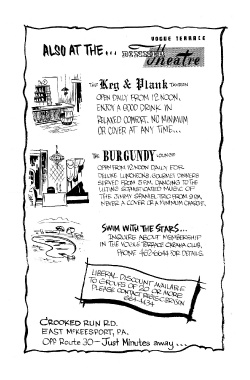 VOGUE TERRACE
ALSO AT THE...
Theatre
THE Keg & Plank TAVERN
OPEN DAILY FROM 12 NOON.
ENJOY A GOOD DRINK IN
RELAXED COMFORT. NO MINIMUM
OR COVER AT ANY TIME...
THE BURGUNDY LOUNGE
OPEN FROM 12 NOON DAILY FOR
DELUXE LUNCHEONS. GOURMET DINNERS
SERVED FROM 5 P.M. DANCING TO THE
ULTRA SOPHISTICATED MUSIC OF
THE JIMMY SPANIEL TRIO FROM 9 P.M.
NEVER A COVER OR A MINIMUM CHARGE.
SWIM WITH THE STARS...
INQUIRE ABOUT MEMBERSHIP
IN THE VOGUE TERRACE CABANA CLUB.
PHONE FOR DETAILS.
LIBERAL DISCOUNT AVAILABLE
TO GROUPS OF 20 OR MORE
PLEASE CONTACT
664-4134
CROOKED RUN RD.
EAST MCKEESPORT, PA.
OFF Route 30 — Just Minutes away...